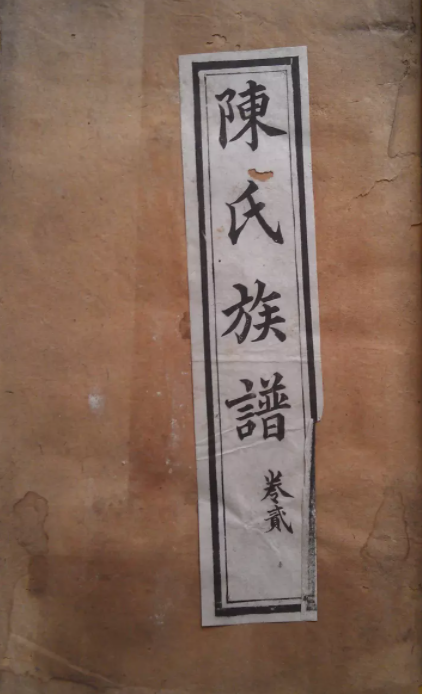 陳氏族譜
卷貳